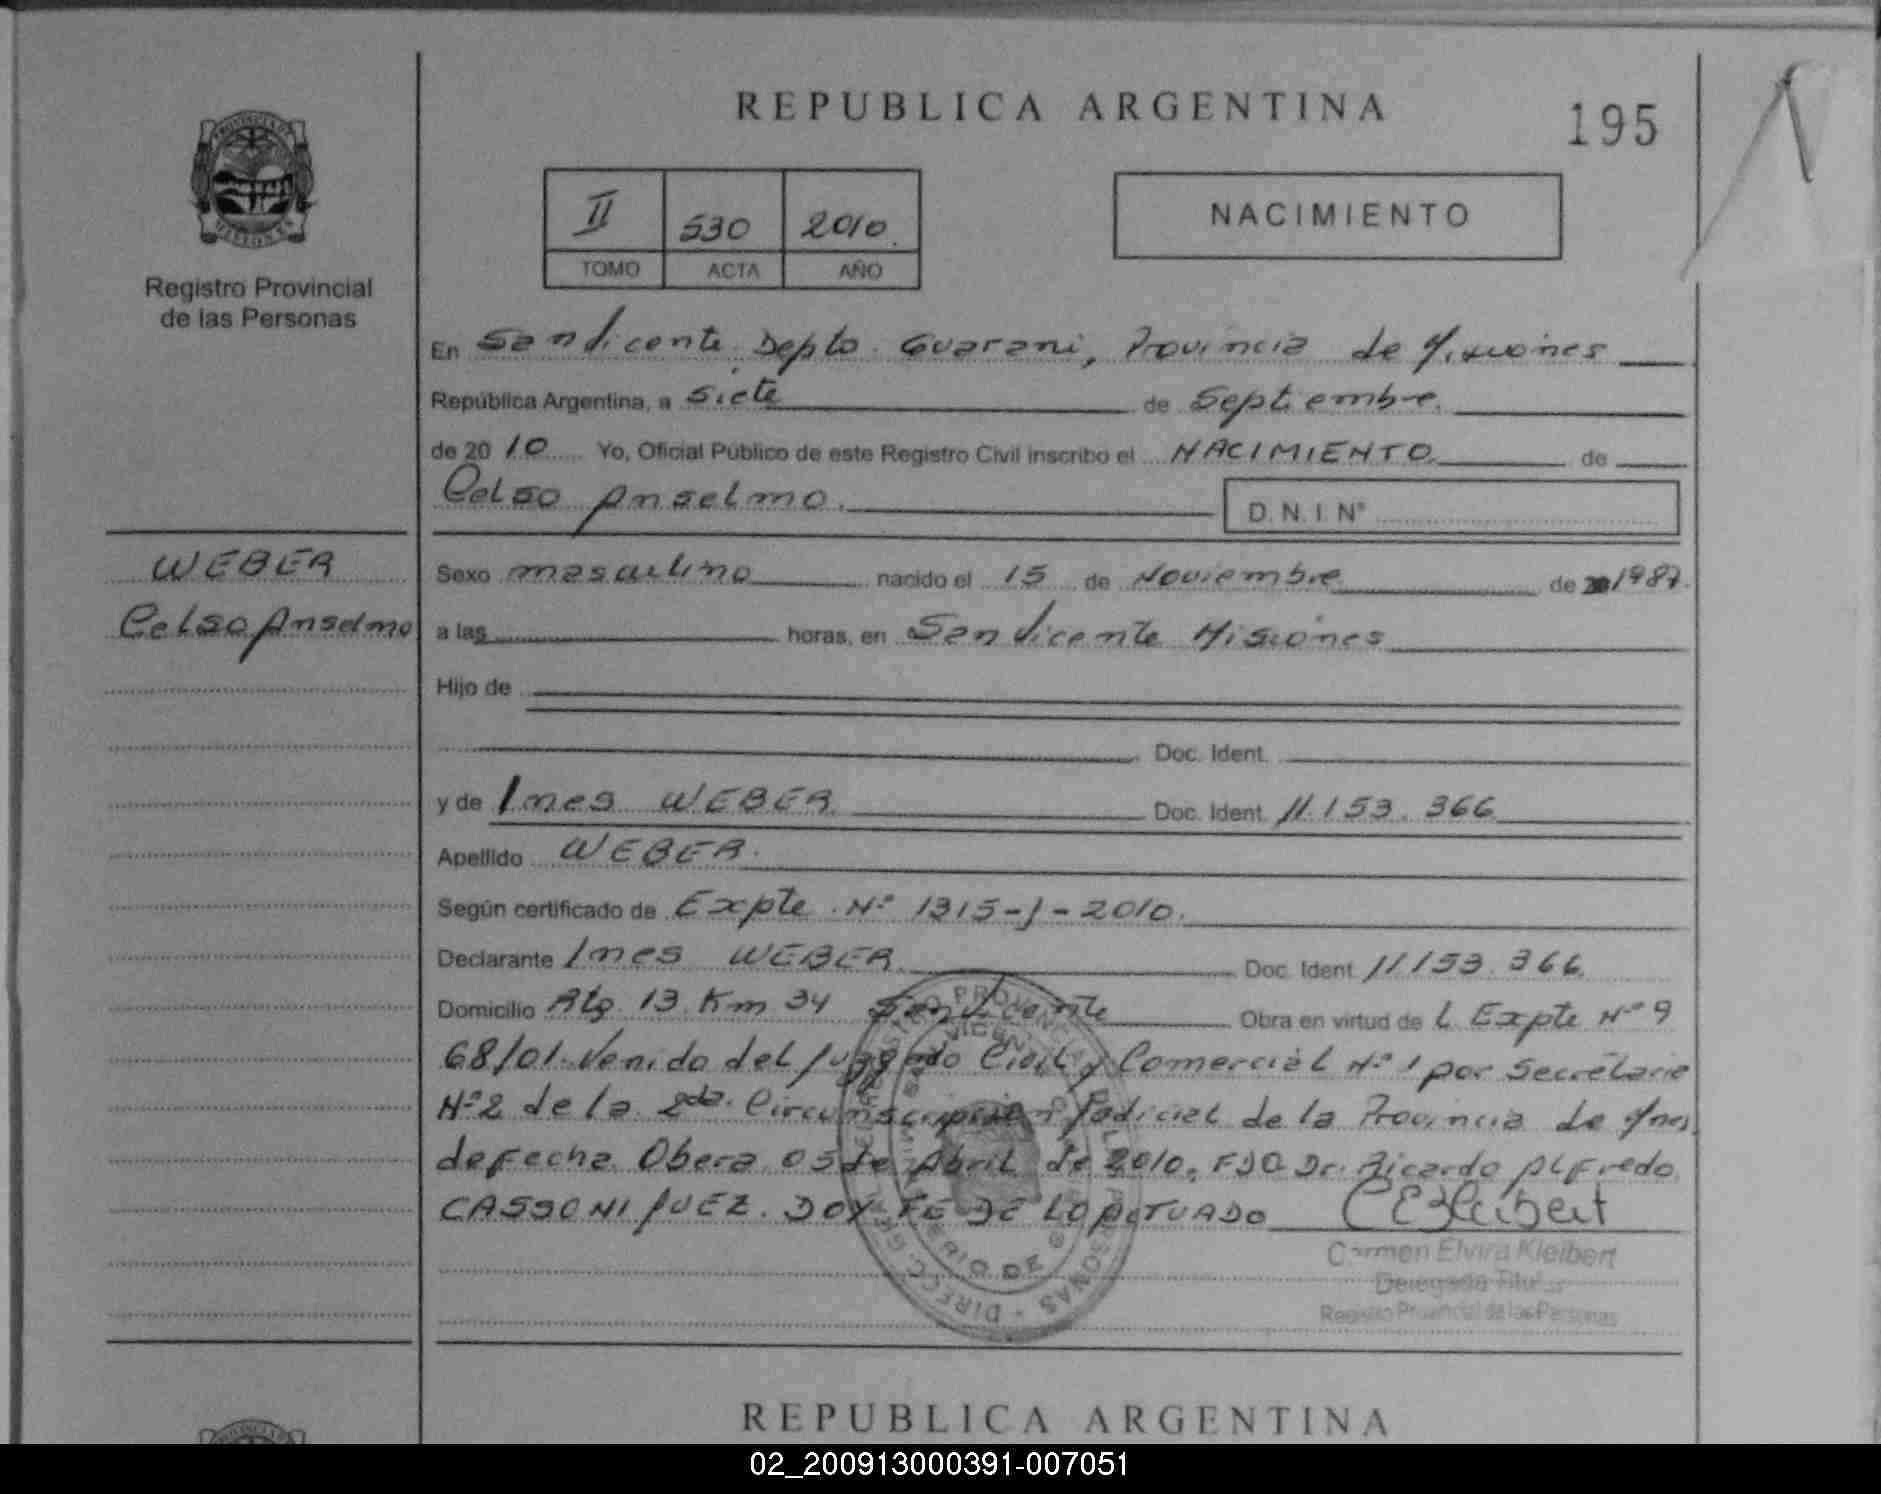 REPUBLICA ARGENTINA
195
PROVINCIA DE MISIONES
Registro Provincial
de las Personas
II 530 2010.
TOMO ACTA AÑO
NACIMIENTO
En San Vicente Depto. Guarani, Provincia de Misiones
República Argentina, a siete de Septiembre.
de 20 10 Yo, Oficial Público de este Registro Civil inscribo el NACIMIENTO de
Celso Anselmo.
D. N. I. N°
WEBER
Celso Anselmo
Sexo masculino nacido el 15 de Noviembre de 1987.
a las horas, en San Vicente Misiones
Hijo de
Doc. Ident.
y de Ines WEBER Doc. Ident. 11.153.366
Apellido WEBER.
Según certificado de Expte. Nº 1315-J-2010.
Declarante Ines WEBER. Doc. Ident. 11153.366
Domicilio Km 34 San Vicente Obra en virtud de L Expte Nº 9
68/01. Venido del Juzgado Civil y Comercial Nº 1 por Secretaria
Nº 2 de la 2da. Circunscripcion Judicial de la Provincia de Mnes
de fecha Obera 05 de Abril de 2010, FDO Dr. Ricardo Alfredo
CASSONI JUEZ. DOY FE DE LO ACTUADO
Carmen Elvira Kleibert
Delegada Titular
Registro Provincial de las Personas
REPUBLICA ARGENTINA
02_200913000391-007051